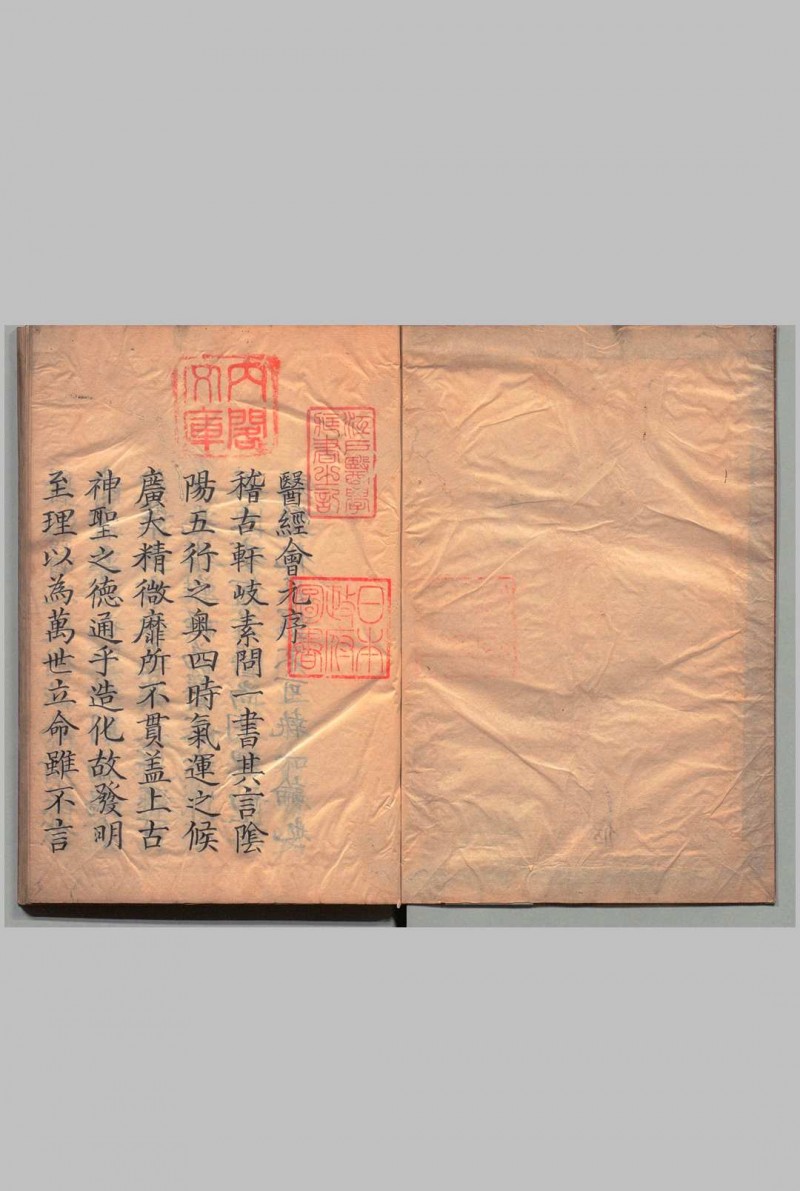 醫經會元序
稽古軒岐素問一書其言陰
陽五行之奥四時氣運之候
廣大精微靡所不貫盖上古
神聖之德通乎造化故發明
至理以為萬世立命雖不言
內閣
文庫
江戶醫學
藏書之記
日本
政府
圖書